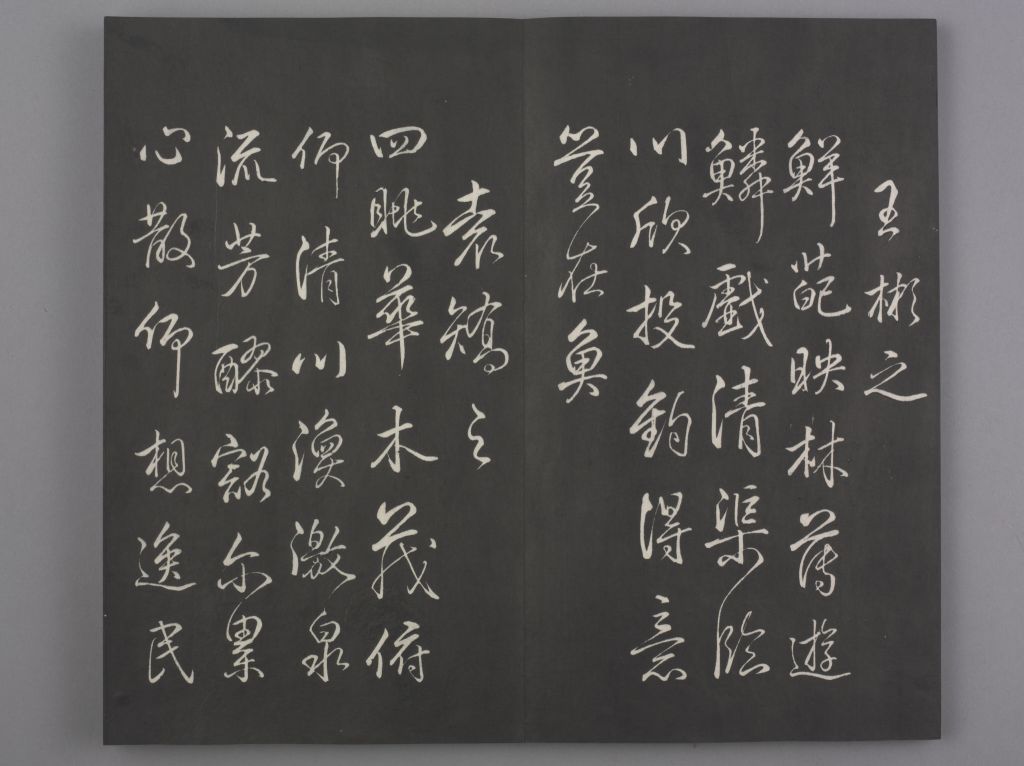 王彬之
鮮葩映林薄遊
鱗戲清渠臨
川欣投釣得意
豈在魚
袁矯之
四眺華木茂俯
仰清川渙激泉
流芳醪豁尓累
心散仰想逸民